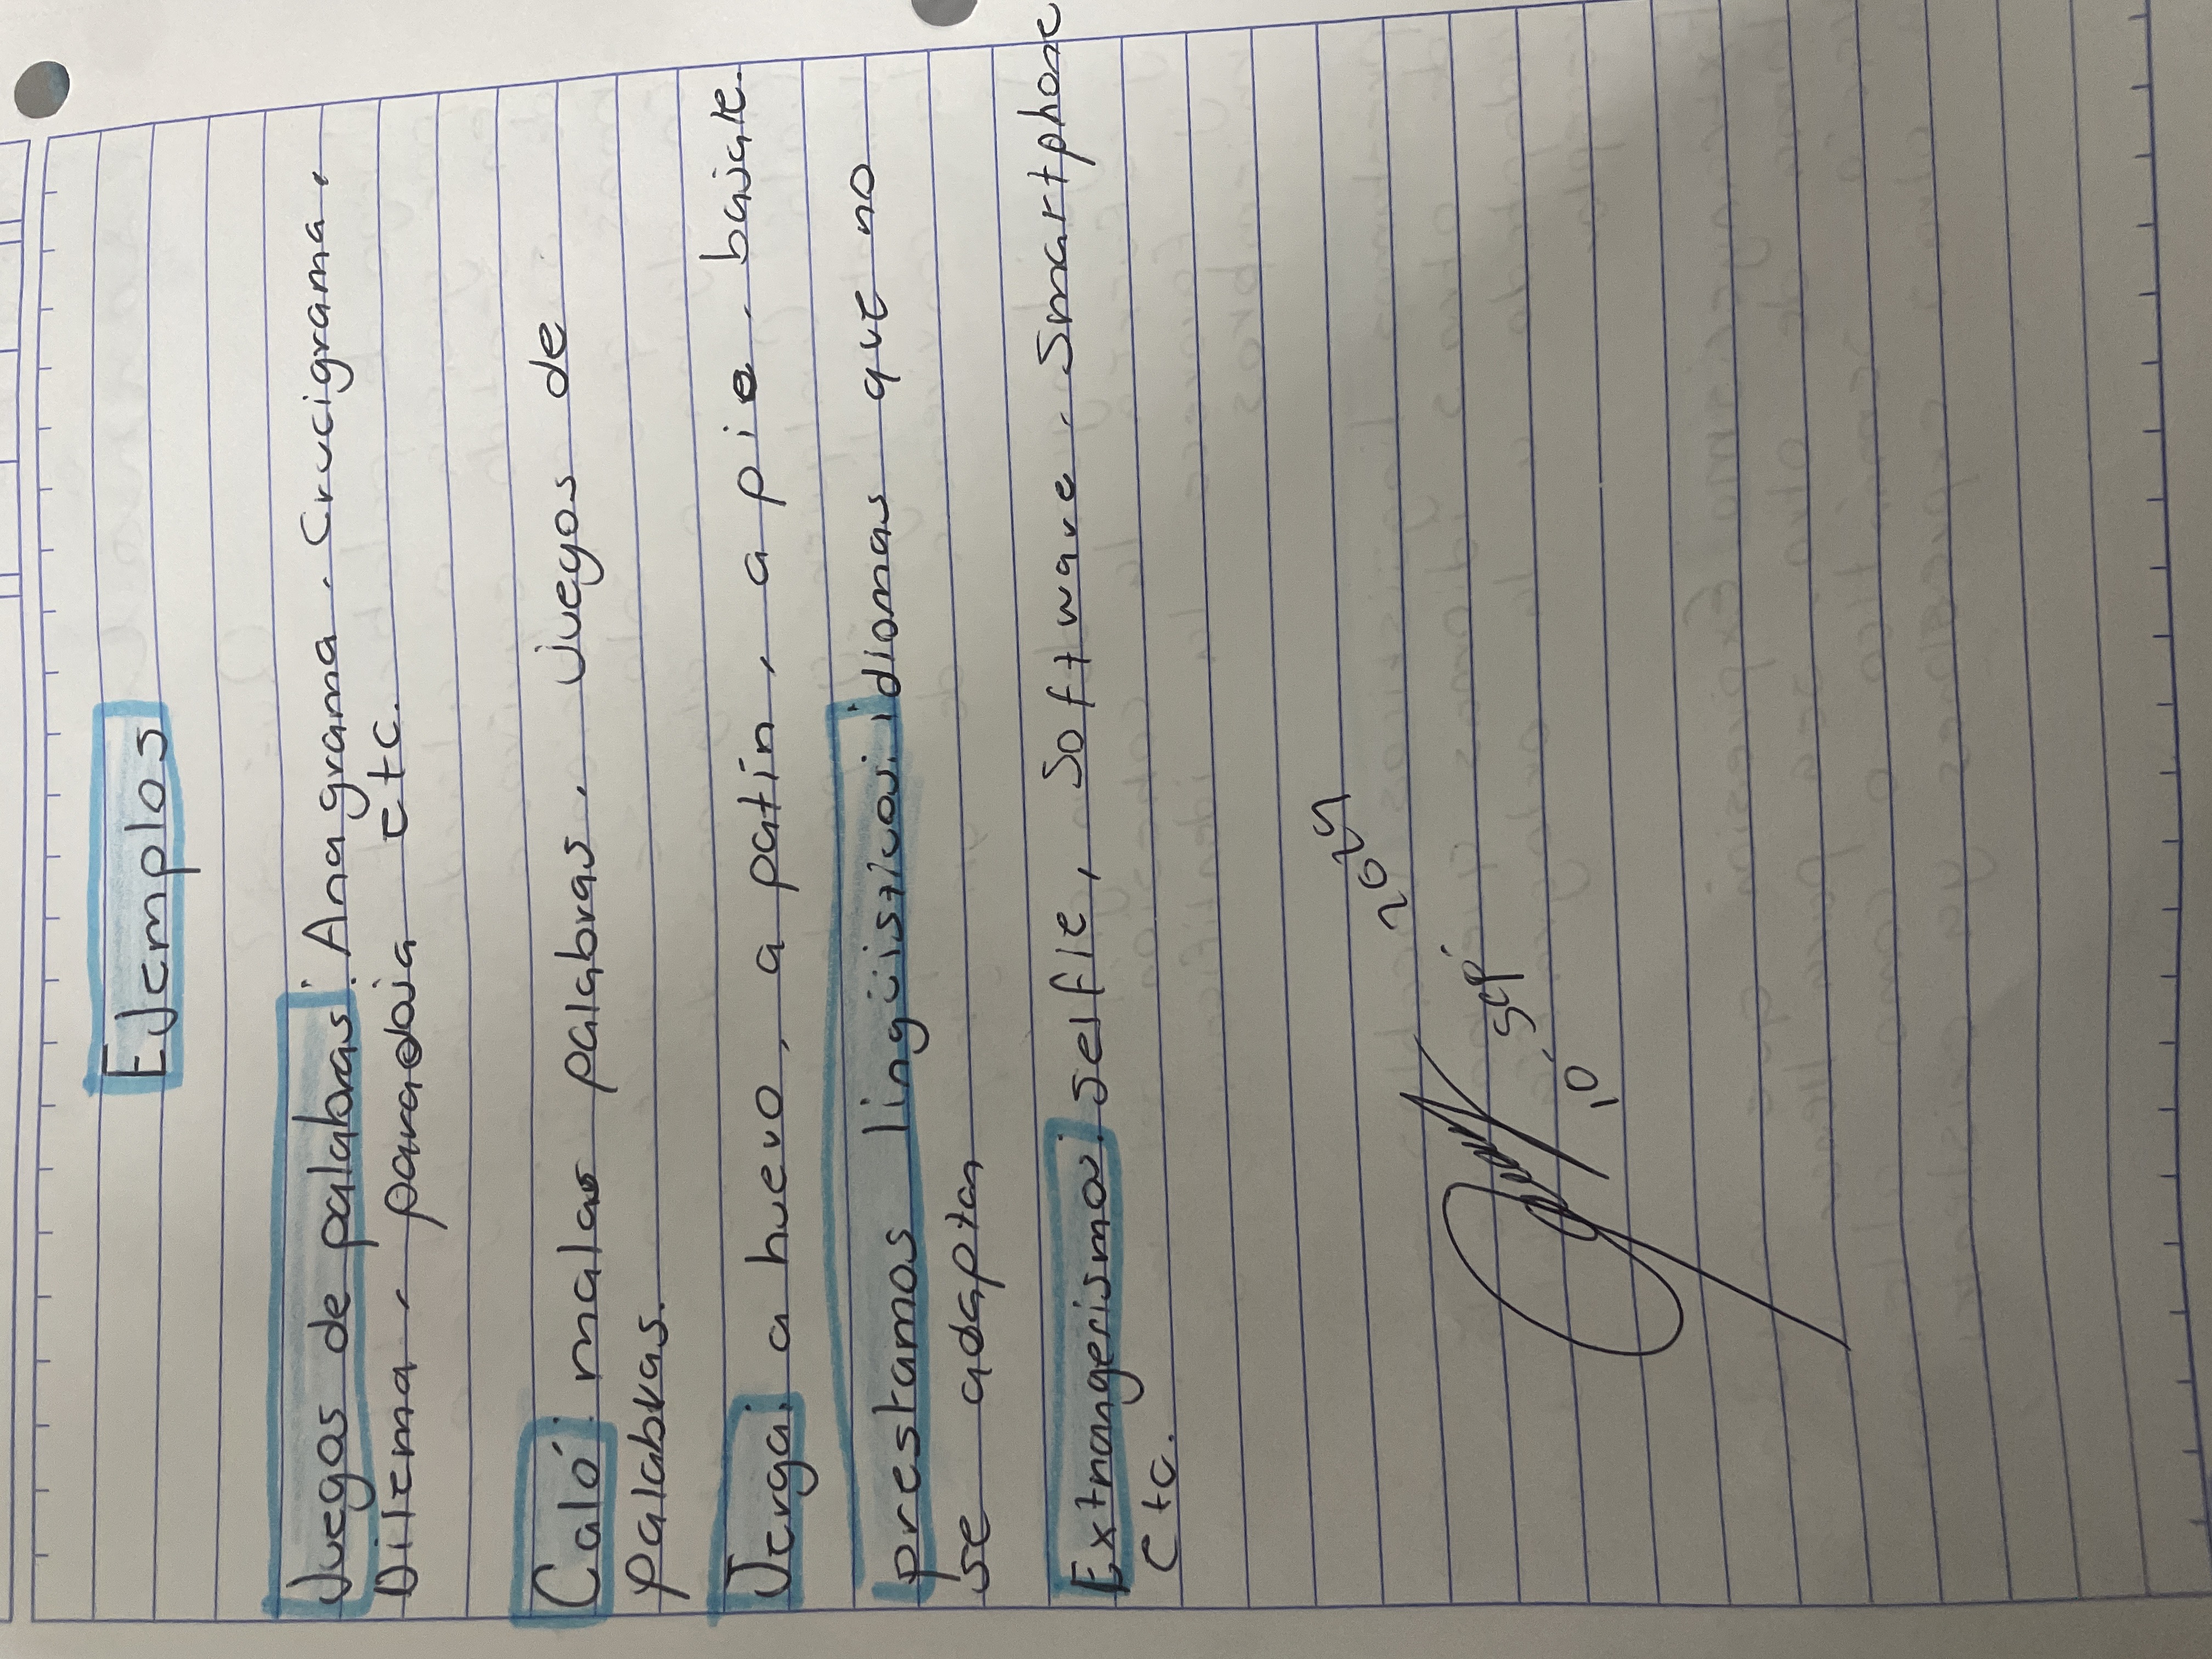 Ejemplos
Juegos de palabras: Anagrama. Crucigrama.
Dilema, paradoja etc.
Caló: malas palabras, juegos de
palabras.
Jerga: a huevo, a patín, a pie, bájate.
prestamos lingüisticos: idiomas que no
se adaptan
Extrangerismo: selfie, software, smartphone
etc.
2025
sep
10